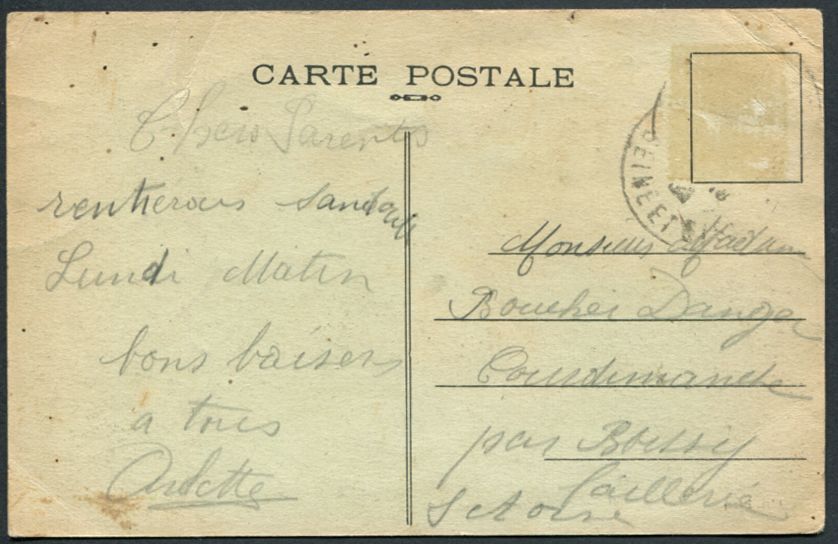 CARTE POSTALE
Chers Parents
rentrerons sans doute
Lundi Matin
bons baisers
a tous
Arlette
SEINE ET
Monsieur Madame
Boucher Danger
Courdimanche
par Boissy
l'aillerie
S et Oise